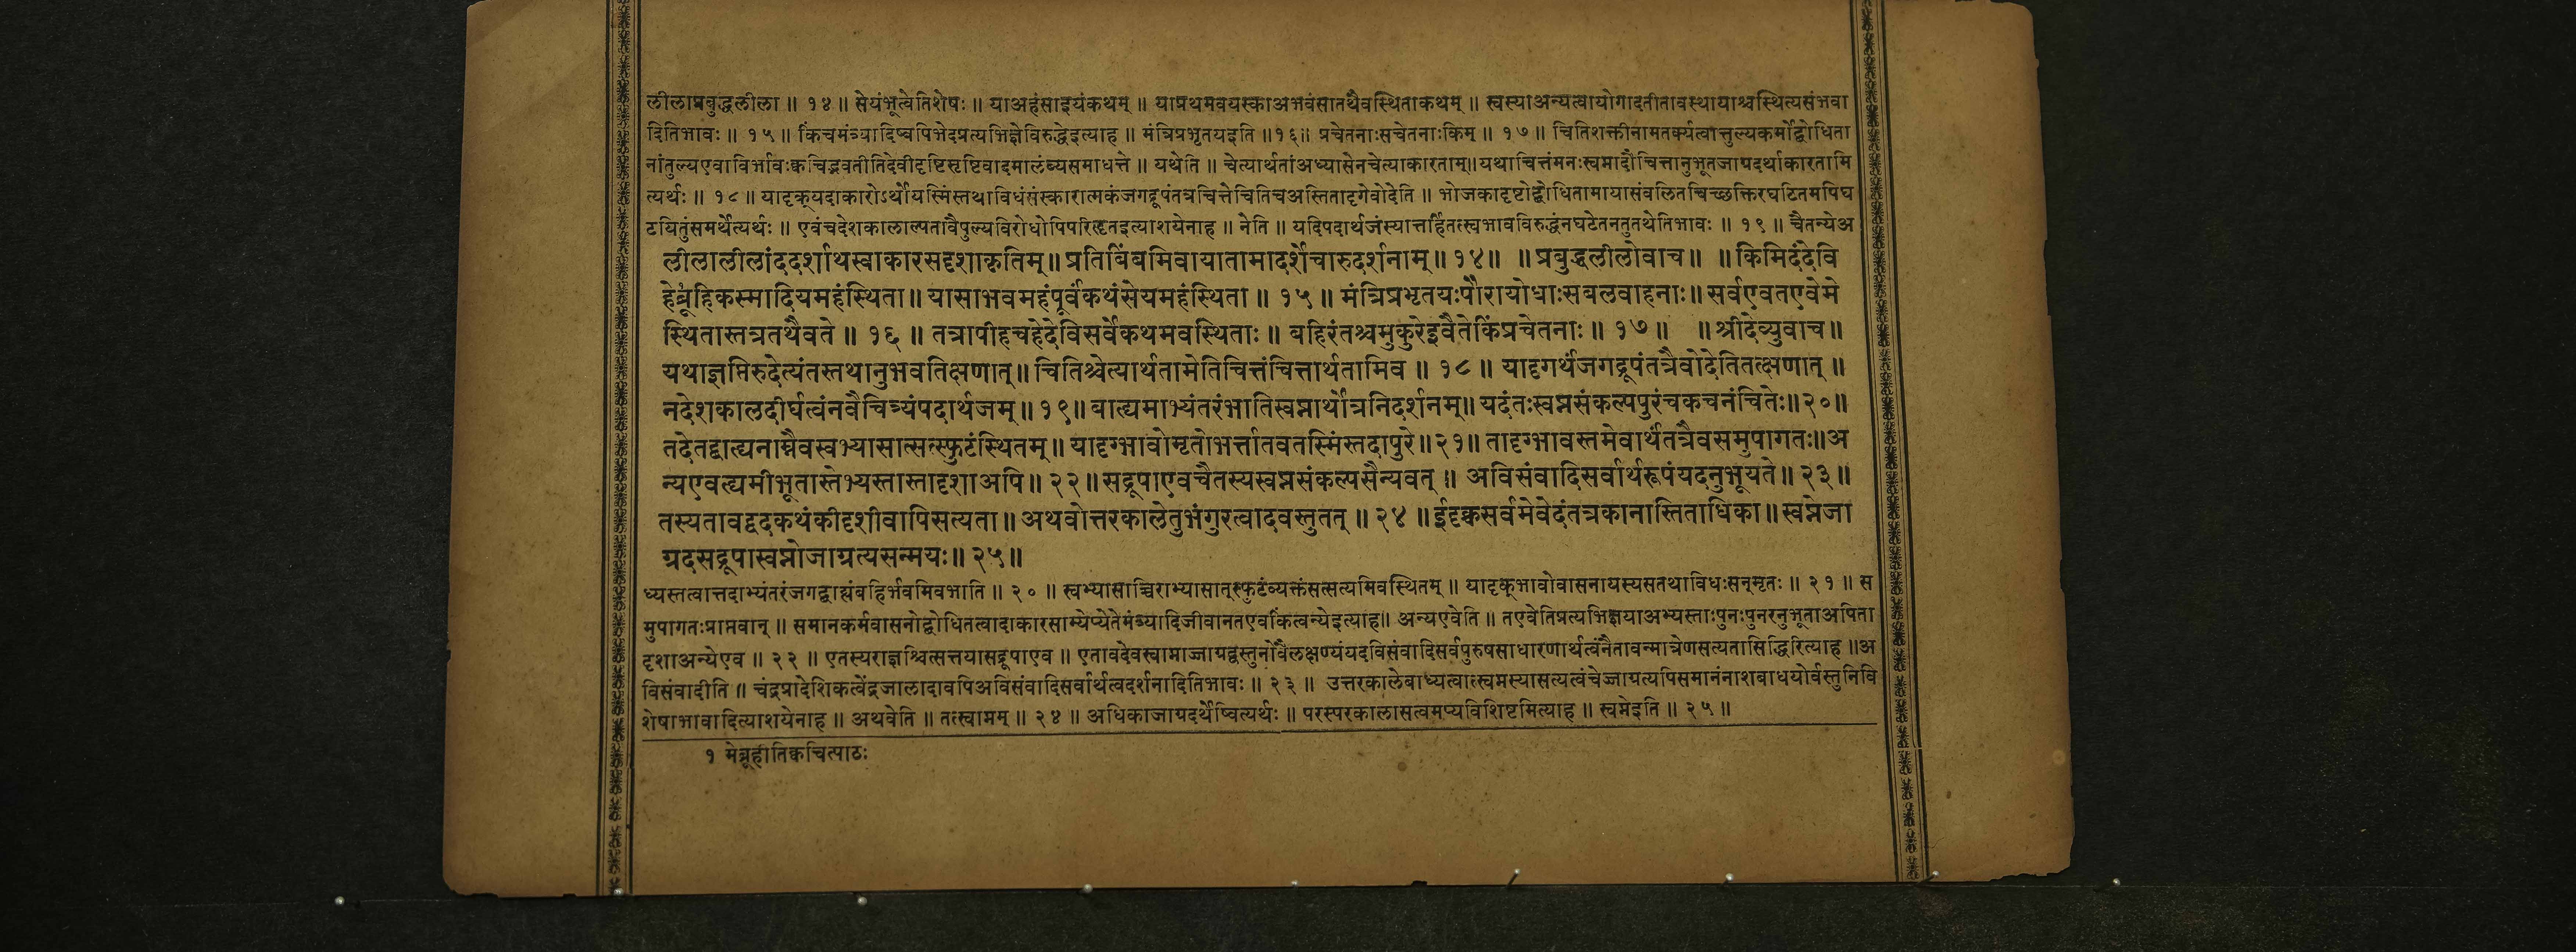 लीलाप्रबुद्धलीला ॥ १४ ॥ सेयंभूत्वेतिशेषः ॥ याअहंसाइयंकथम् ॥ याप्रथमवयस्काअभवंसातथैवस्थिताकथम् ॥ स्वस्याअन्यत्वायोगादतीतावस्थायाश्चस्थित्यसंभवा
दितिभावः ॥ १५ ॥ किंचमंत्र्यादिष्वपिभेदप्रत्यभिज्ञेविरुद्धेइत्याह ॥ मंत्रिप्रभृतयइति ॥१६॥ प्रचेतनाःसचेतनाःकिम् ॥ १७ ॥ चितिशक्तीनामतर्क्यत्वात्तुल्यकर्मोद्बोधिता
नांतुल्यएवाविर्भावःक्वचिद्भवतीतिदेवीदृष्टिसृष्टिवादमालंब्यसमाधत्ते ॥ यथेति ॥ चेत्यार्थतांअध्यासेनचेत्याकारताम्॥यथाचित्तंमनःस्वप्नादौचित्तानुभूतजाग्रदर्थाकारतामि
त्यर्थः ॥ १८ ॥ यादृक्यदाकारोऽर्थोयस्मिंस्तथाविधंसंस्कारात्मकंजगद्रूपंतत्रचित्तेचितिचअस्तितादृगेवोदेति ॥ भोजकादृष्टोद्बोधितामायासंवलितचिच्छक्तिरघटितमपिघ
टयितुंसमर्थेत्यर्थः ॥ एवंचदेशकालाल्पतावैपुल्यविरोधोपिपरिहृतइत्याशयेनाह ॥ नेति ॥ यदिपदार्थजंस्यात्तर्हितत्स्वभावविरुद्धंनघटेतनतुतथेतिभावः ॥ १९ ॥ चैतन्येअ
लीलालीलांददर्शाथस्वाकारसदृशाकृतिम्॥ प्रतिबिंबमिवायातामादर्शेचारुदर्शनाम्॥ १४॥ ॥ प्रबुद्धलीलोवाच॥ ॥ किमिदंदेवि
हेब्रूहिकस्मादियमहंस्थिता॥ यासाभवमहंपूर्वंकथंसेयमहंस्थिता ॥ १५ ॥ मंत्रिप्रभृतयःपौरायोधाःसबलवाहनाः॥ सर्वएवतएवेमे
स्थितास्तत्रतथैवते ॥ १६ ॥ तत्रापीहचहेदेविसर्वेकथमवस्थिताः ॥ बहिरंतश्चमुकुरेइवैतेकिंप्रचेतनाः ॥ १७ ॥ ॥ श्रीदेव्युवाच॥
यथाज्ञप्तिरुदेत्यंतस्तथानुभवतिक्षणात्॥ चितिश्चेत्यार्थतामेतिचित्तंचित्तार्थतामिव ॥ १८ ॥ यादृगर्थंजगद्रूपंतत्रैवोदेतितत्क्षणात् ॥
नदेशकालदीर्घत्वंनवैचित्र्यंपदार्थजम्॥ १९॥ बाह्यमाभ्यंतरंभातिस्वप्नार्थोत्रनिदर्शनम्॥ यदंतःस्वप्नसंकल्पपुरंचकचनंचितेः॥२०॥
तदेतद्बाह्यनाम्नैवस्वभ्यासात्सत्स्फुटंस्थितम्॥ यादृग्भावोमृतोभर्त्तातवतस्मिंस्तदापुरे॥२१॥ तादृग्भावस्तमेवार्थंतत्रैवसमुपागतः॥अ
न्यएवह्यमीभूतास्तेभ्यस्तास्तादृशाअपि॥ २२॥ सद्रूपाएवचैतस्यस्वप्नसंकल्पसैन्यवत् ॥ अविसंवादिसर्वार्थरूपंयदनुभूयते॥ २३॥
तस्यतावद्वदकथंकीदृशीवापिसत्यता॥ अथवोत्तरकालेतुभंगुरत्वादवस्तुतत् ॥ २४ ॥ ईदृक्चसर्वमेवेदंतत्रकानास्तिताधिका॥ स्वप्नेजा
ग्रदसद्रूपास्वप्नोजाग्रत्यसन्मयः॥ २५॥
ध्यस्तत्वात्तदाभ्यंतरंजगद्बाह्यंबहिर्भवमिवभाति ॥ २० ॥ स्वभ्यासाच्चिराभ्यासात्स्फुटंव्यक्तंसत्सत्यमिवस्थितम् ॥ यादृक्भावोवासनायस्यसतथाविधःसन्मृतः ॥ २१ ॥ स
मुपागतःप्राप्तवान् ॥ समानकर्मवासनोद्बोधितत्वादाकारसाम्येप्येतेमंत्र्यादिजीवानतएवकिंत्वन्येइत्याह॥ अन्यएवेति ॥ तएवेतिप्रत्यभिज्ञयाअभ्यस्ताःपुनःपुनरनुभूताअपिता
दृशाअन्येएव ॥ २२ ॥ एतस्यराज्ञश्चित्सत्तयासद्रूपाएव ॥ एतावदेवस्वाप्नाज्जाग्रद्वस्तुनोवैलक्षण्यंयदविसंवादिसर्वपुरुषसाधारणार्थत्वंनैतावन्मात्रेणसत्यतासिद्धिरित्याह ॥अ
विसंवादीति ॥ चंद्रप्रादेशिकत्वेंद्रजालादावपिअविसंवादिसर्वार्थत्वदर्शनादितिभावः ॥ २३ ॥ उत्तरकालेबाध्यत्वात्स्वप्नस्यासत्यत्वंचेज्जाग्रत्यपिसमानंनाशबाधयोर्वस्तुनिवि
शेषाभावादित्याशयेनाह ॥ अथवेति ॥ तत्स्वाप्नम् ॥ २४ ॥ अधिकाजाग्रदर्थेष्वित्यर्थः ॥ परस्परकालासत्वमप्यविशिष्टमित्याह ॥ स्वप्नेइति ॥ २५ ॥
१ मेब्रूहीतिक्वचित्पाठः